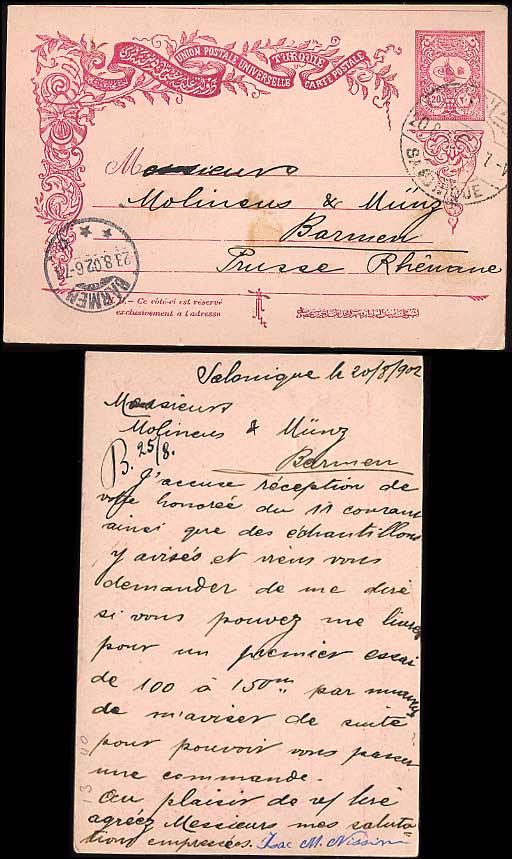 UNION POSTALE UNIVERSELLE
TURQUIE
CARTE POSTALE
20
SALONIQUE
Messieurs
Molineus & Münz
Barmen
Prusse Rhénane
BARMEN
23.8.02.6-7
N.B.- Ce côté-ci est réservé
exclusivement à l'adresse
Salonique le 20/8/902
Messieurs
Molineus & Münz
Barmen
B. 25/8.
J'accuse réception de
votre honorée du 11 courant
ainsi que des échantillons
y avisés et viens vous
demander de me dire
si vous pouvez me livrer
pour un premier essai
de 100 à 150 m par
de m'aviser de suite
pour pouvoir vous passer
une commande.
Au plaisir de vs lire
agréez Messieurs mes saluta
tions empressées. Isac M. Nissim